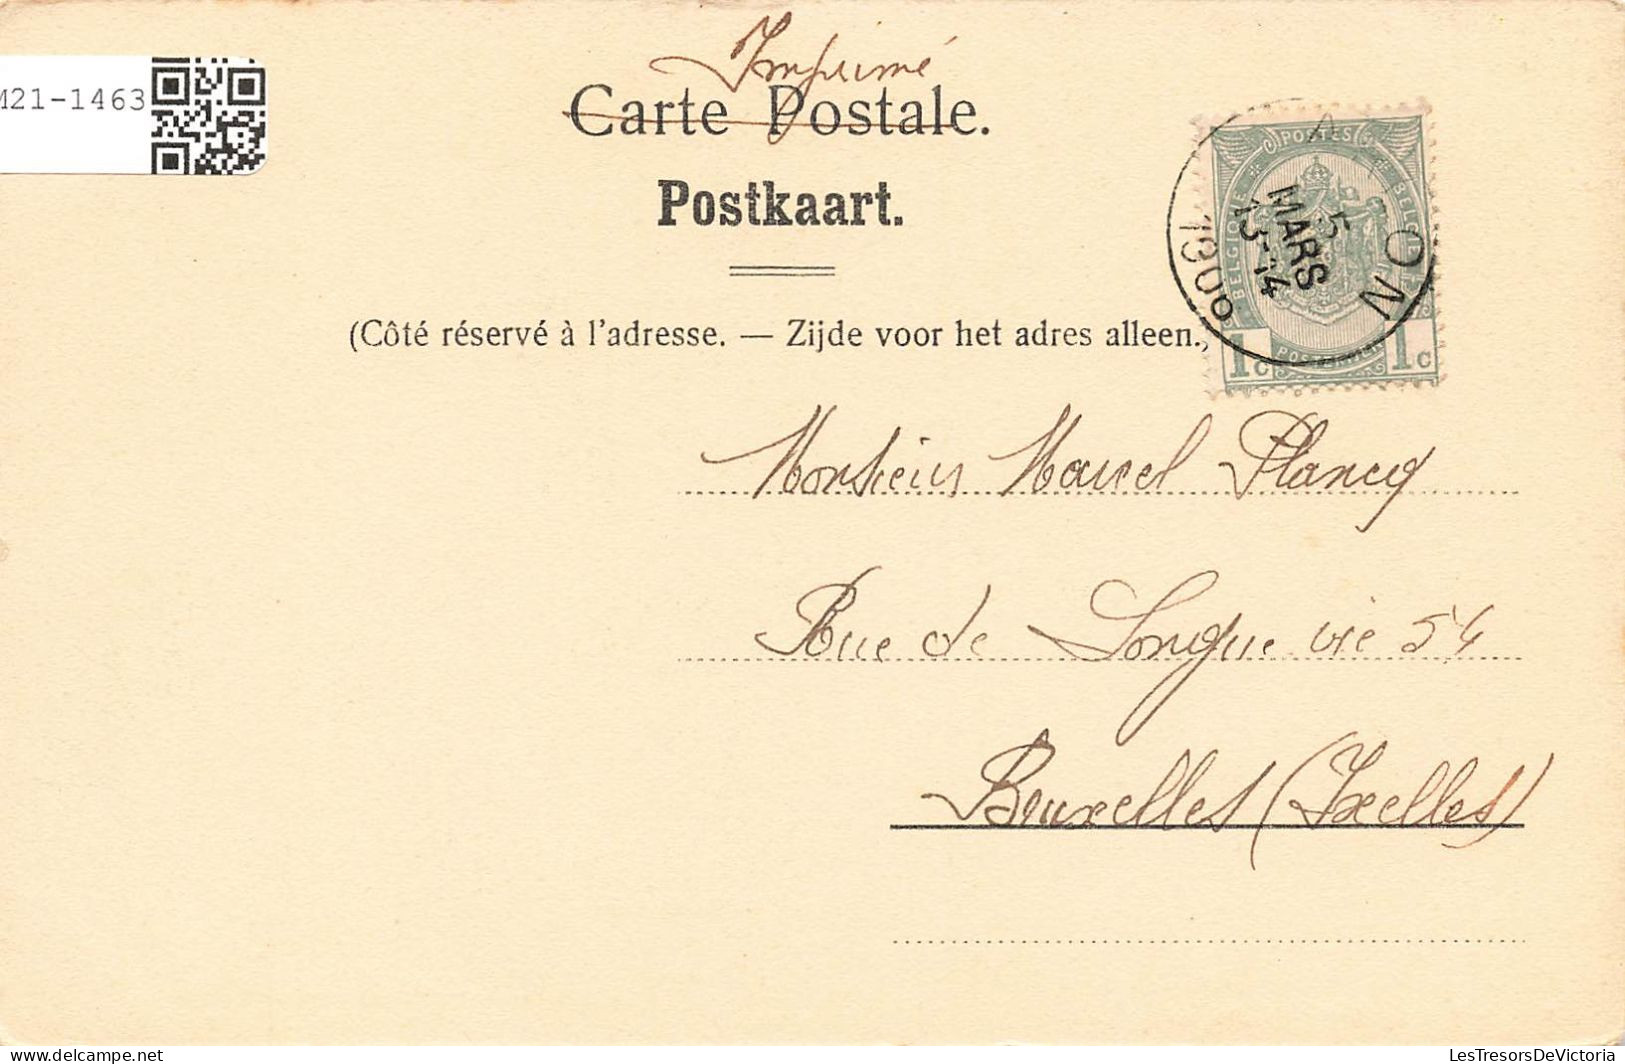 Imprimé
M21-1463
Carte Postale.
Postkaart.
POSTES
BELGIQUE
BELGIE
POSTERIJEN
1c 1c
5
MARS
13-14
ON
(Côté réservé à l'adresse. — Zijde voor het adres alleen.)
Monsieur Marcel Plancq
Rue de Longue vie 54
Bruxelles (Ixelles)
LesTresorsDeVictoria